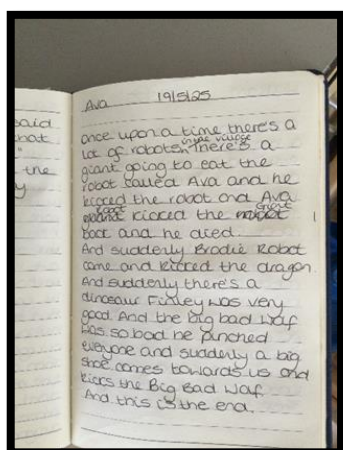 said
that
the
y
Ava 19/5/25
once upon a time there's a
in the village
lot of robots there's a
giant going to eat the
robot called Ava and he
kicked the robot and Ava
kicked the giant
back and he died.
And suddenly Brodie Robot
came and kicked the dragon.
And suddenly there's a
dinosaur Finley was very
good And the big bad Wolf
was so bad he pinched
everyone and suddenly a big
shoe comes towards us and
kicks the Big Bad Wolf.
And this is the end.